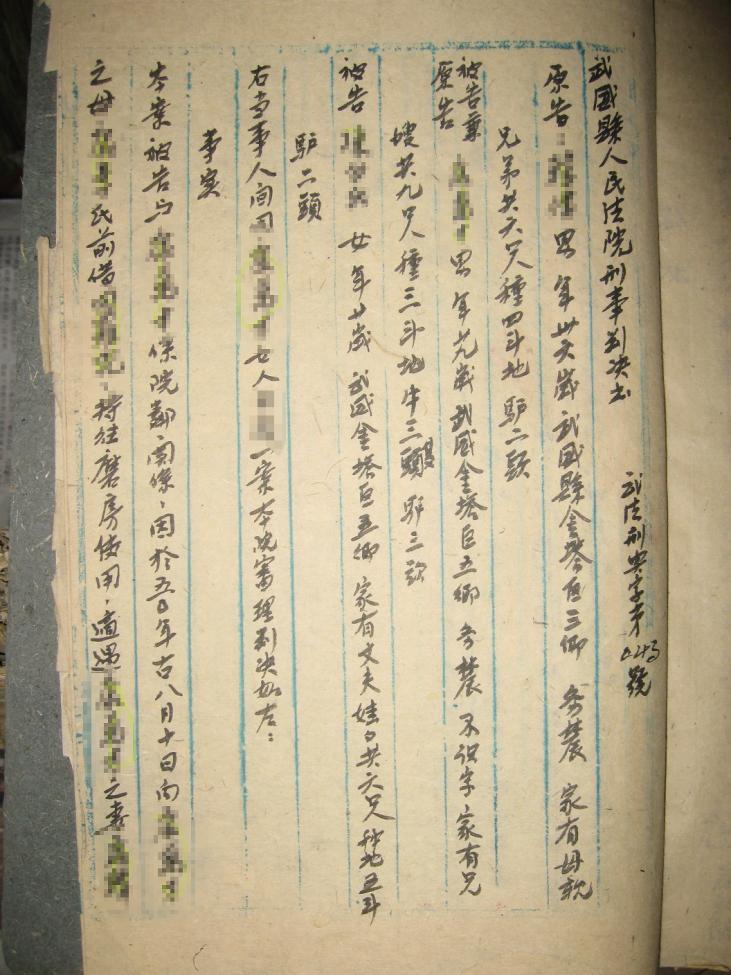 武威縣人民法院刑事判决书
武法刑典字第043號
原告：男 年卅六歲 武威縣金塔区三乡 务農 家有母親
兄弟共六人種四斗地 驴二头
被告兼原告 男 年廿九歲 武威金塔区五鄉 务農 不识字 家有兄
嫂共九人種三斗地 牛三頭 驴三头
被告 女 年廿歲 武威金塔区五鄉 家有丈夫娃口共六人 种地五斗
驴二頭
右当事人间因 女人 一案本院審理判决如左：
事实
本案被告与 係院鄰関係，因於五〇年古八月十日向
之母 氏前借 持往磨房使用，適遇 之妻